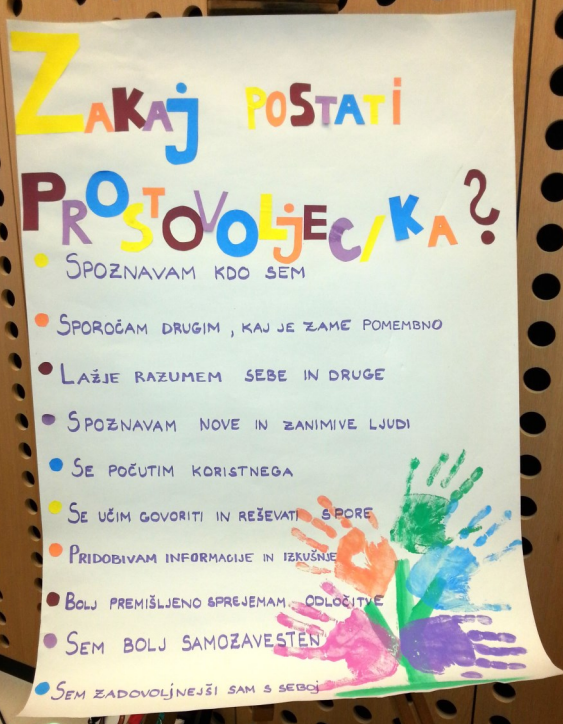 ZAKAJ POSTATI
PROSTOVOLJEC/KA?
SPOZNAVAM KDO SEM
SPOROČAM DRUGIM, KAJ JE ZAME POMEMBNO
LAŽJE RAZUMEM SEBE IN DRUGE
SPOZNAVAM NOVE IN ZANIMIVE LJUDI
SE POČUTIM KORISTNEGA
SE UČIM GOVORITI IN REŠEVATI SPORE
PRIDOBIVAM INFORMACIJE IN IZKUŠNJE
BOLJ PREMIŠLJENO SPREJEMAM ODLOČITVE
SEM BOLJ SAMOZAVESTEN
SEM ZADOVOLJNEJŠI SAM S SEBOJ